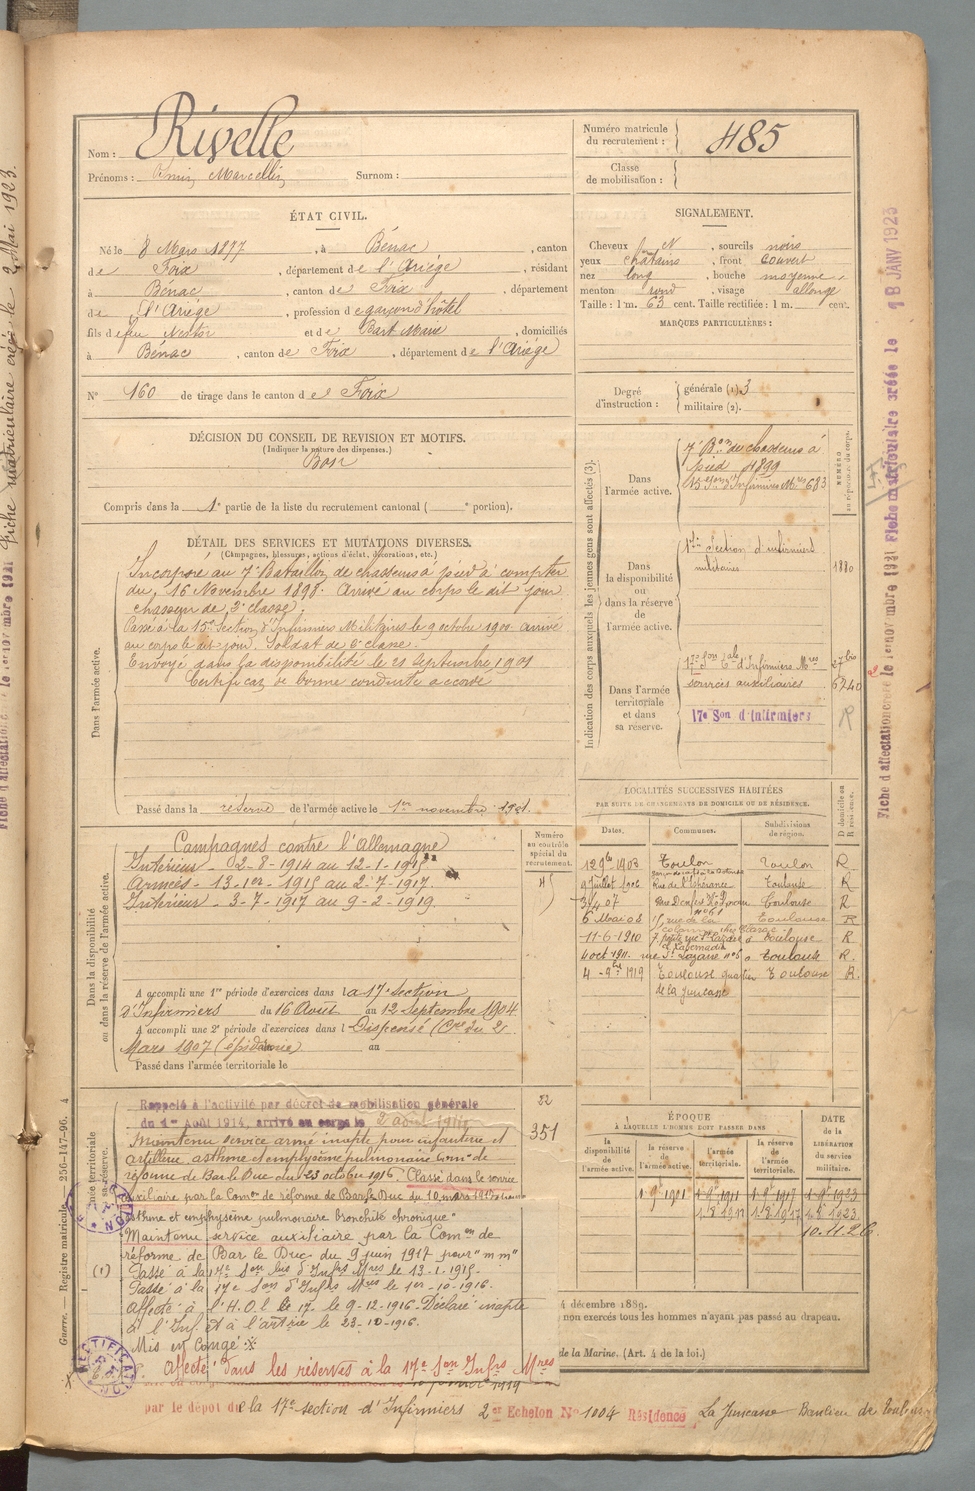 Nom : Rivelle
Prénoms : Marcellin Surnom :
Numéro matricule du recrutement : 485
Classe de mobilisation :
ÉTAT CIVIL.
Né le 8 Mars 1877, à Bénac, canton
de Foix, département de l'Ariége, résidant
à Bénac, canton de Foix, département
de l'Ariége, profession de garçon d'hôtel
fils de feu Nestor et de Bart Marie, domiciliés
à Bénac, canton de Foix, département de l'Ariége
N° 160 de tirage dans le canton de Foix
SIGNALEMENT.
Cheveux N, sourcils noirs
yeux châtains, front couvert
nez long, bouche moyenne,
menton rond, visage allongé
Taille : 1 m. 63 cent. Taille rectifiée : 1 m. cent.
MARQUES PARTICULIÈRES :
Degré d'instruction : générale (1) 3
militaire (2).
DÉCISION DU CONSEIL DE REVISION ET MOTIFS.
(Indiquer la nature des dispenses.)
Bon
Compris dans la 1e partie de la liste du recrutement cantonal ( e portion).
DÉTAIL DES SERVICES ET MUTATIONS DIVERSES.
(Campagnes, blessures, actions d'éclat, décorations, etc.)
Dans l'armée active.
Incorporé au 7e Bataillon de chasseurs à pied à compter
du 16 Novembre 1898. Arrivé au corps le dit jour
chasseur de 2e classe.
Passé à la 15e Section d'Infirmiers Militaires le 9 octobre 1900. arrivé
au corps le dit jour. Soldat de 2e classe.
Envoyé dans la disponibilité le 21 Septembre 1901
Certificat de bonne conduite accordé
Passé dans la réserve de l'armée active le 1er novembre 1901.
Indication des corps auxquels les jeunes gens sont affectés (3).
NUMÉRO
Dans l'armée active.
7e Bon de chasseurs à
pied 4899
15e Son d'Infirmiers Mres 683
Dans la disponibilité ou dans la réserve de l'armée active.
Section d'infirmiers
militaires 1880
Dans l'armée territoriale et dans sa réserve.
17e Son d'Infirmiers Mres 27bis
services auxiliaires 6240
17e Son d'Infirmiers R
Dans la disponibilité ou dans la réserve de l'armée active.
Campagnes contre l'Allemagne
Intérieur - 2-8-1914 au 12-1-1915
Armées - 13-1er-1915 au 2-7-1917.
Intérieur - 3-7-1917 au 9-2-1919.
Numéro au contrôle spécial du recrutement.
A accompli une 1re période d'exercices dans la 17e Section
d'Infirmiers du 16 Août au 12 Septembre 1904
A accompli une 2e période d'exercices dans l Dispensé (Cre du 2
Mars 1907 (épidémie) au
Passé dans l'armée territoriale le
LOCALITÉS SUCCESSIVES HABITÉES
PAR SUITE DE CHANGEMENTS DE DOMICILE OU DE RÉSIDENCE.
Dates. Communes. Subdivisions de région. D domicile ou R résidence.
12 9bre 1903 Toulon Toulon R
9 Juillet Rue de l'Espérance Toulouse R
3/4 07 Rue Denfert Rochereau Toulouse R
6 Mai 08 rue de la Toulouse R
11-6-1910 Toulouse R
4 oct 1911. rue St Lazare n° 6 Toulouse R.
4 - 1919 Toulouse quartier Toulouse R.
de la Juncasse
Rappelé à l'activité par décret de mobilisation générale
du 1er Août 1914, arrivé au corps le 2 août 1914
Maintenu service armé inapte pour infanterie et
artillerie, asthme et emphysème pulmonaire Comon de
réforme de Bar le Duc du 23 octobre 1916. Classé dans le service
auxiliaire par la Comon de réforme de Bar le Duc du 10 mars 1917
asthme et emphysème pulmonaire bronchite chronique"
Maintenu service auxiliaire par la Comon de
réforme de Bar le Duc du 9 juin 1917 pour "m m"
Passé à la Son d'Infrs Mres le 13-1-1915.
Passé à la 17e Son d'Infrs Mres le 1er-10-1916.
affecté à l'H.O.E le 17. le 9-12-1916. Déclaré inapte
à l'Inf et à l'artrie le 23-10-1916.
Mis en Congé
1919
Affecté dans les réserves à la 17e Son Infrs Mres
par le dépôt de la 17e section d'Infirmiers 2e Echelon N° 1004 Résidence La Juncasse Banlieu de Toulouse
22
351
ÉPOQUE
À LAQUELLE L'HOMME DOIT PASSER DANS
la disponibilité de l'armée active. la réserve de l'armée active. l'armée territoriale. la réserve de l'armée territoriale.
DATE de la LIBÉRATION du service militaire.
1-9-1901 1-9-1911 1-9-1917 1-9-1923
1-8-1917 1-8-1923
10.11.26
4 décembre 1889.
non exercés tous les hommes n'ayant pas passé au drapeau.
de la Marine. (Art. 4 de la loi.)
(1)
RECTIFICATION
Guerre. — Registre matricule. — 256-147-96. 4
Fiche matriculaire créée le 18 JANV 1923
Fiche d'affectation créée le 1er novembre 1921
Fiche matriculaire créée le 2 Mai 1923.